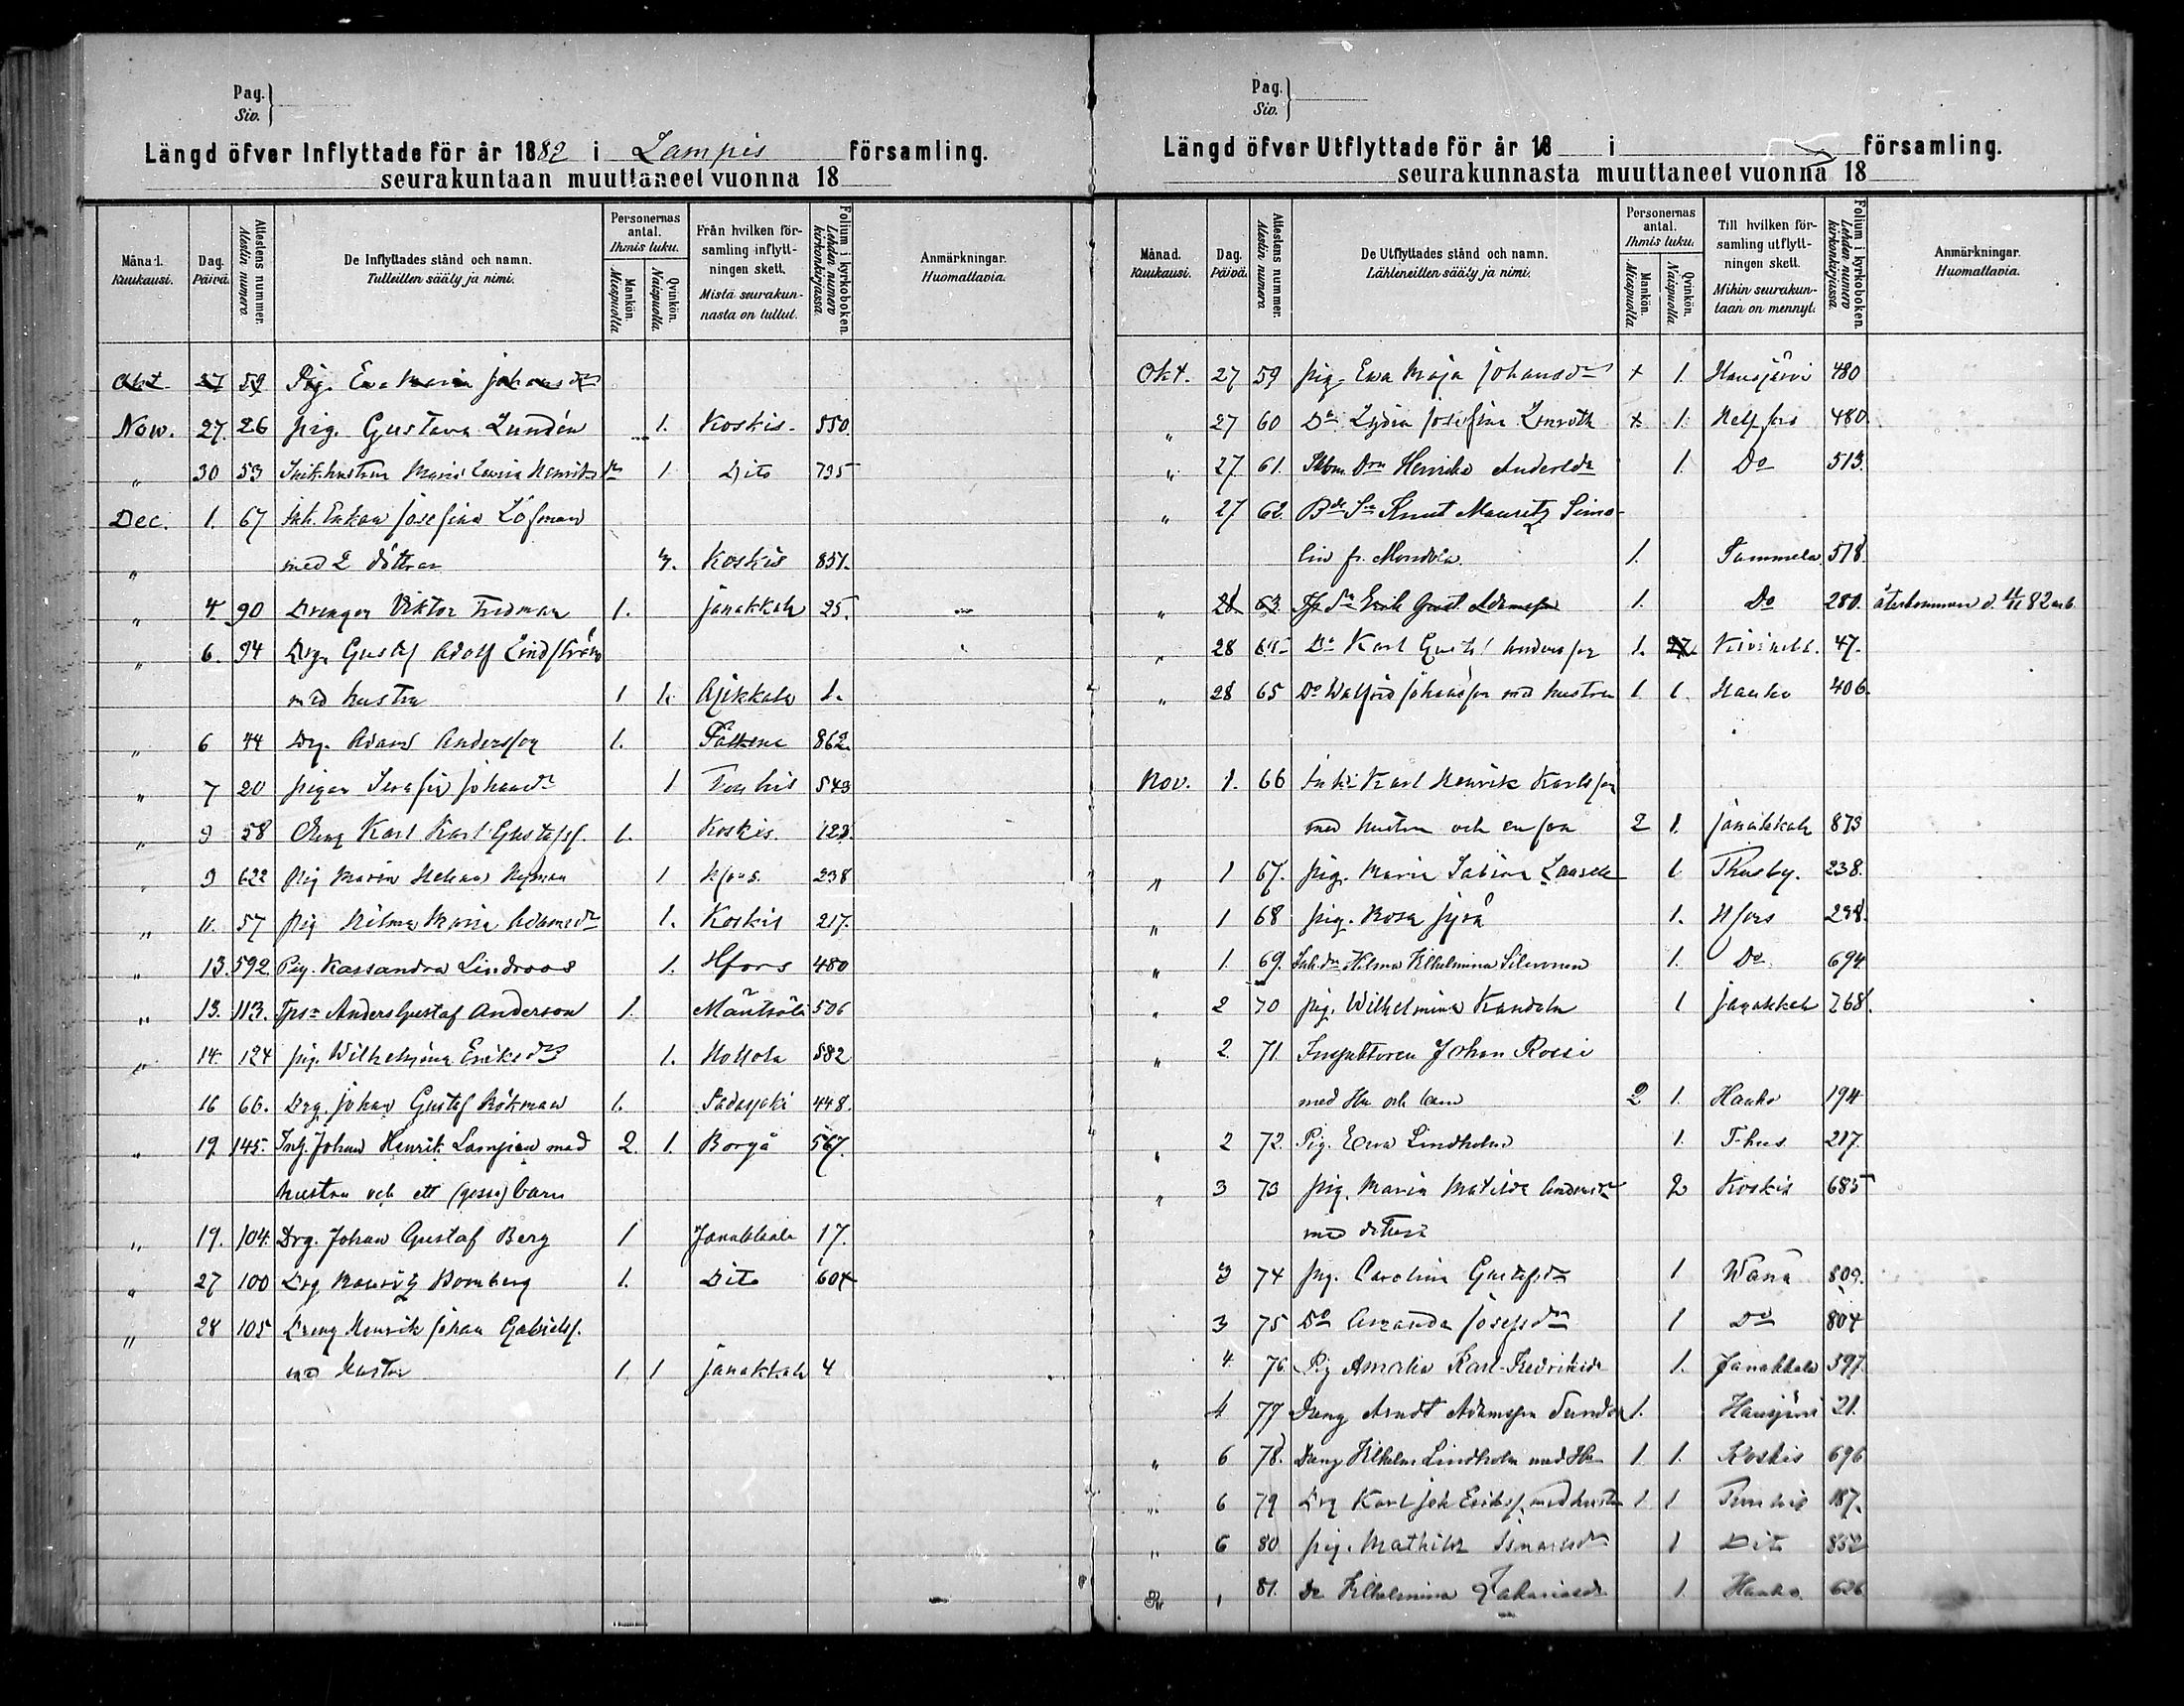 Pag.
Siv.
Längd öfver Inflyttade för år 1882 i Lampis församling.
seurakuntaan muuttaneet vuonna 18
Månad. Kuukausi.
Dag. Päivä.
Attestens nummer. Atestin numero
De Inflyttades stånd och namn. Tulleitten sääty ja nimi.
Personernas antal. Ihmis luku.
Mankön. Miespuolia
Qvinkön. Naispuolia
Från hvilken församling inflyttningen skett. Mistä seurakunnasta on tullut.
Folium i kyrkoboken. Lehden numero kirkonkirjassa.
Anmärkningar. Huomattavia.
Okt. 27 59 Pig. Eva Maria Johansdr
Now. 27. 26 pig. Gustava Lundén 1. Koskis. 550.
" 30 53 Maria Henriksdr 1 Dito 795
Dec. 1. 67 Enkan Josefina Löfman
" med 2 döttrar 3. Koskis 851.
" 4 90 Drengen Viktor Fredman 1. Janakkala 25.
" 6. 94 Drg. Gustaf Adolf Lindström
med hustru 1 1. 1.
" 6 44 Drg. Adam Andersson 1. 862.
" 7 20 pigan Johansdr 1 543
" 9 58 Dreng Karl Karl Gustafss. 1. Koskis. 123.
" 9 622 Pig Maria Helena Nyman 1 Hfors. 238
" 11. 57 Pig Hilma Maria Adamsdr 1. Koskis 217.
" 13. 592. Pig. Kassandra Lindroos 1. Hfors 480
" 13. 113. Anders Gustaf Anderson 1. Mäntsälä 506
" 14. 124 pig. Wilhelmina Eriksdr 1. Hollola 582
16 66. Drg. Johan Gustaf Hökman 1. Padasjoki 448.
" 19. 145. Inh. Johan Henrik Lampien med 2. 1. Borgå 567.
hustru och ett (gosse) barn
" 19. 104. Drg. Johan Gustaf Berg 1 Janakkala 17.
" 27 100 Drg Mauritz Bomberg 1. Dito 604
" 28 105 Dreng Henrik Johan Gabrielss.
med hustru 1 1 Janakkala 4
Pag.
Siv.
Längd öfver Utflyttade för år 18 i församling.
seurakunnasta muuttaneet vuonna 18
Månad. Kuukausi.
Dag. Päivä.
Attestens nummer. Atestin numero
De Utflyttades stånd och namn. Lähteneitten sääty ja nimi.
Personernas antal. Ihmis luku.
Mankön. Miespuolia
Qvinkön. Naispuolia
Till hvilken församling utflyttningen skett. Mihin seurakuntaan on mennyt.
Folium i kyrkoboken. Lehden numero kirkonkirjassa.
Anmärkningar. Huomattavia.
Okt. 27 59 pig. Ewa Maja Johansdr + 1. Hausjärvi 480
" 27 60 Do Lydia Josefina Lenroth + 1. Helsfors 480.
" 27. 61. Henrika Andersdr 1. Do 513.
" 27 62. Knut Mauritz Simo-
lin fr. 1. Tammela 518.
" 28 63. Erik Gust. Adamsson 1. Do 280. återkommen d. 4/11 82
" 28 64 Do Karl Gustaf Andersson 1. 47.
" 28 65 Do Walfrid Johansson med hustru 1 1. Hauho 406.
Nov. 1. 66 Karl Henrik Karlsson
med hustru och en son 2 1. Janakkala 873
" 1 67. pig. Maria Sabina 1 Thusby. 238.
" 1 68 pig. Rosa 1. Hfors 238.
" 1. 69. Hilma Vilhelmina Silvonen 1. Do 694.
" 2 70 pig. Wilhelmina Kandola 1 Janakkala 768.
" 2. 71. Inspektoren Johan Rossi
med Hu och barn 2 1. Hauho 194
" 2 72. Pig. Ewa Lindholm 1. T-hus 217.
" 3 73 pig. Maria Matilda Andersdr 2 Koskis 685
med dotter
3 74 pig. Carolina Gustafsdr 1 Wånå 809.
3 75 Do Amanda Josefsdr 1 Do 804
4. 76. Pig Amalia Karl Fredriksdr 1. Janakkala 397.
4 77 Dreng Arndt Adamsson Sundén 1. Hausjärvi 21.
" 6 78. Dreng Vilhelm Lindholm med Hu 1 1. Koskis 696
" 6 79 Drg Karl Joh Erikss. med hustru 1 1 187.
" 6 80 pig. Mathilda 1 Dito 852
" 81. Do Vilhelmina Zakariasdr 1. Hauho. 626